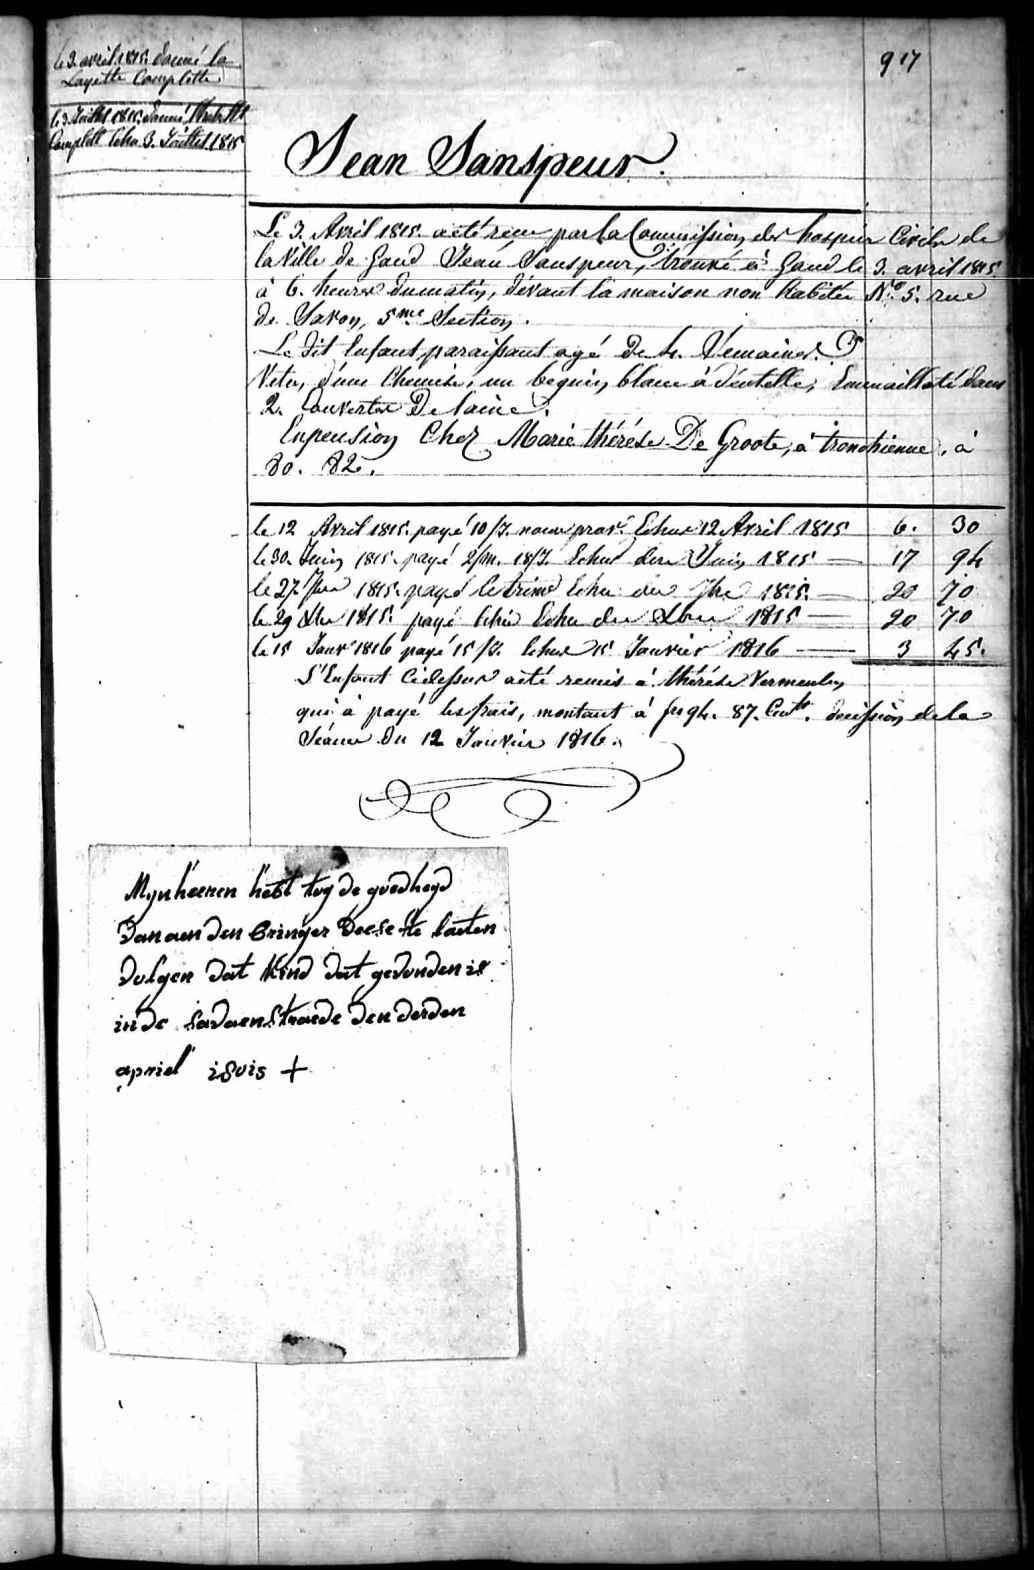 917
le 3. avril 1815. donné la
Layette Complette.
le 3. Juillet 1815. donné
Complett Echu 3. Juillet 1815
Jean Sanspeur.
Le 3. Avril 1815. a eté recu par la Commission des hospices Civils de
la Ville de Gand Jean Sanspeur, trouvé à Gand le 3. avril 1815
à 6. heures du matin, devant la maison non habitée No 5. rue
de Savon, 5me Section.
Le dit Enfant paraissant agé de 4. Semaines.
Vetu, d'une Chemise, un beguin, blanc à dentelle, Emmailloté dans
2. Couvertes De laine.
En pension Chez Marie thérése De Groote, à tronchienne, à
80. 82.
le 12 Avril 1815. payé 10/J. nour prov. Echus 12 Avril 1815 6. 30
le 30. Juin 1815. payé 2/m. 18/J. Echus den Juin 1815 — 17 94
le 27. 7bre 1815. payé le trime Echu du 7bre 1815. — 20 70
le 29 Xbre 1815. payé Echu du Xbre 1815 — 20 70
le 15 Janvr 1816 payé 15/J. Echus 15 Janvier 1816 — 3 45.
L'Enfant Cidessus a eté remis à thérése Vermeulen
qui à payé les frais, montant à frs 94. 87. Cents. decission de la
Séance du 12 Janvier 1816.
Mynheeren hebt tog de goedheyd
van aen den bringer deese te laeten
volgen dat kind dat gevonden is
in de savaenstraede den derden
apriel i8vis +